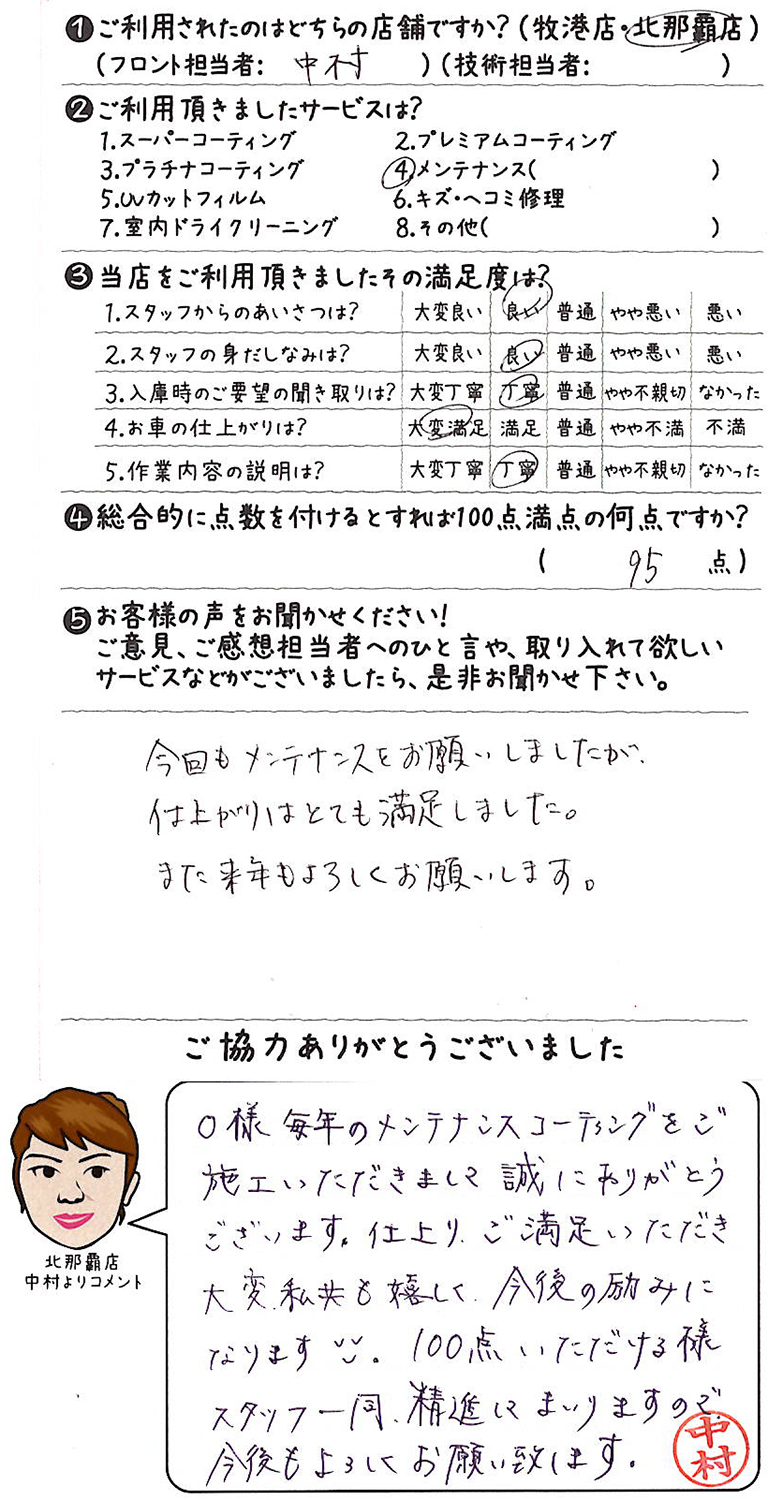 ❶ご利用されたのはどちらの店舗ですか?(牧港店・北那覇店)
(フロント担当者: 中村 )(技術担当者: )
❷ご利用頂きましたサービスは?
1.スーパーコーティング 2.プレミアムコーティング
3.プラチナコーティング 4.メンテナンス( )
5.UVカットフィルム 6.キズ・ヘコミ修理
7.室内ドライクリーニング 8.その他( )
❸当店をご利用頂きましたその満足度は?
1.スタッフからのあいさつは? 大変良い 良い 普通 やや悪い 悪い
2.スタッフの身だしなみは? 大変良い 良い 普通 やや悪い 悪い
3.入庫時のご要望の聞き取りは? 大変丁寧 丁寧 普通 やや不親切 なかった
4.お車の仕上がりは? 大変満足 満足 普通 やや不満 不満
5.作業内容の説明は? 大変丁寧 丁寧 普通 やや不親切 なかった
❹総合的に点数を付けるとすれば100点満点の何点ですか?
( 95 点)
❺お客様の声をお聞かせください!
ご意見、ご感想担当者へのひと言や、取り入れて欲しい
サービスなどがございましたら、是非お聞かせ下さい。
今回もメンテナンスをお願いしましたが、
仕上がりはとても満足しました。
また来年もよろしくお願いします。
ご協力ありがとうございました
O様 毎年のメンテナンスコーティングをご
施工いただきまして 誠にありがとう
ございます。仕上り、ご満足いただき
大変、私共も嬉しく、今後の励みに
なります。100点いただける様
スタッフ一同、精進してまいりますので、
今後もよろしくお願い致します。
中村
北那覇店
中村よりコメント